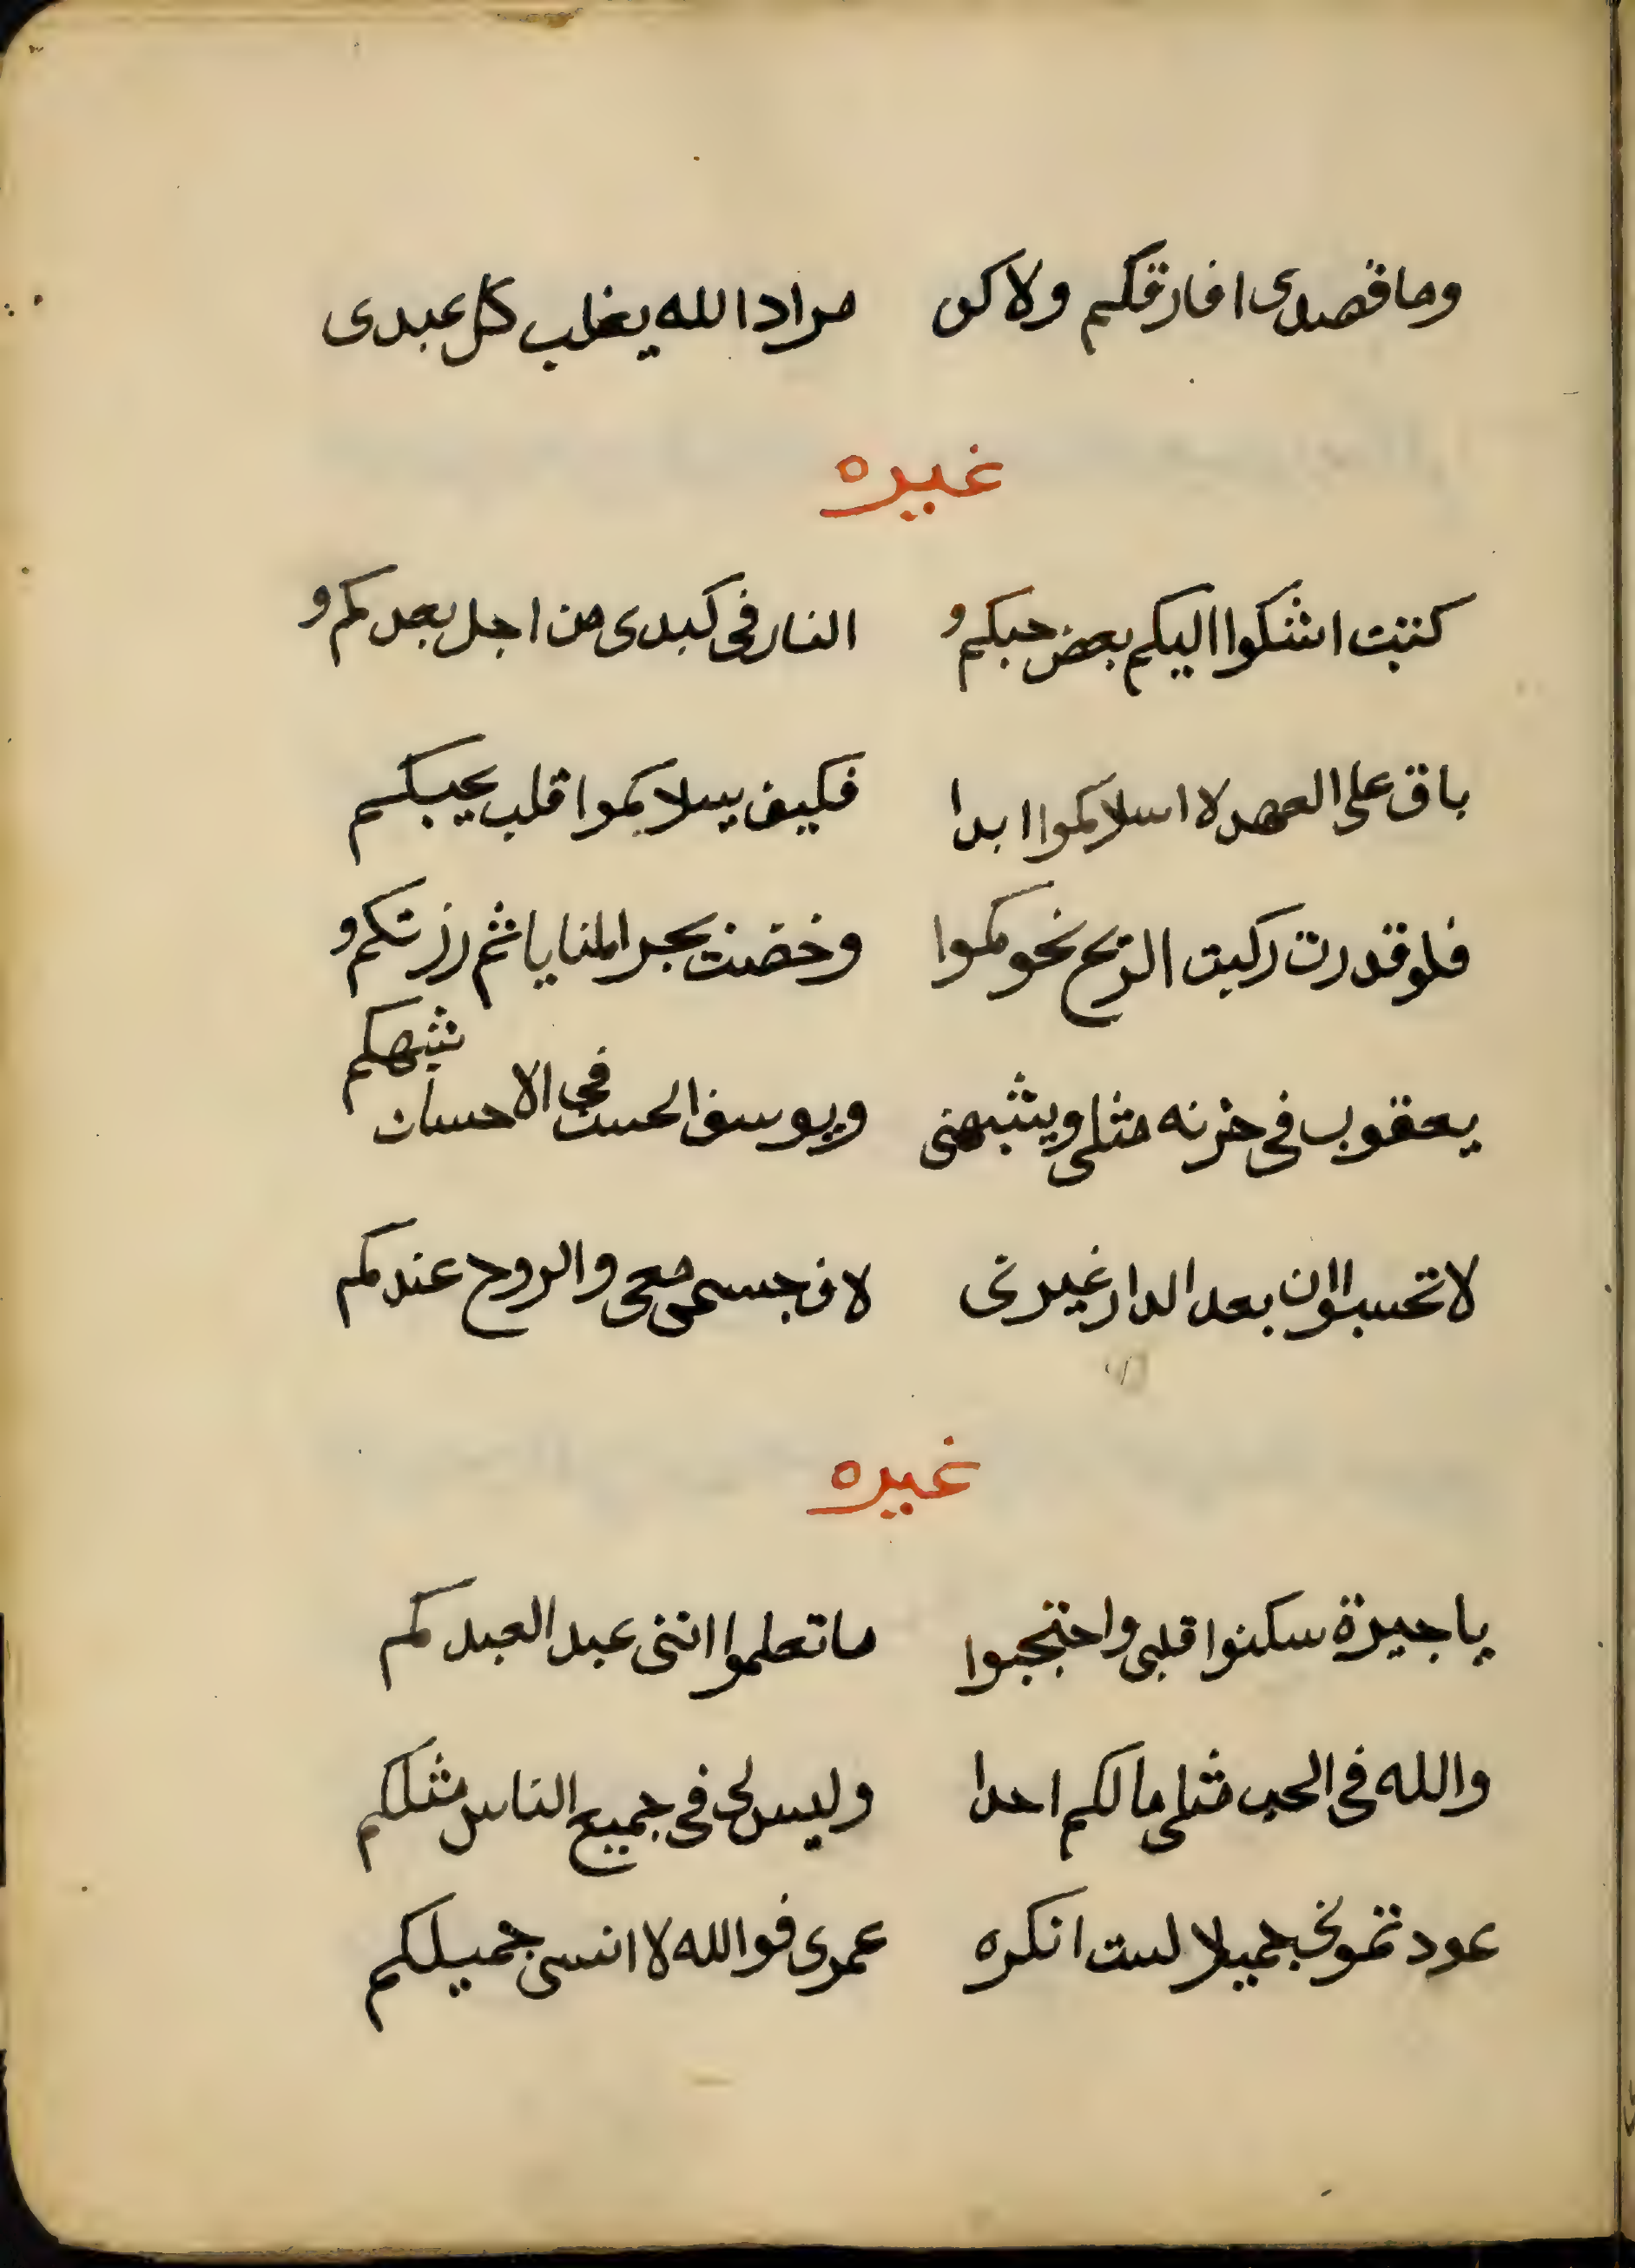 وما قصدى افارقكم ولاكن مراد الله يغلب كل عبدى
غيره
كتبت اشكوا اليكم بعض حبكم و النار فى كبدى من اجل بعدكم و
باق على العهد لا اسلاكموا ابدا فكيف يسلاكموا قلب يحبكم
فلو قدرت ركبت الريح نحوكموا وخضت بحر المنايا ثم زرتكم و
يعقوب فى حزنه مثلى ويشبهنى ويوسف الحسن فى الاحسان شبهكم
لا تحسبوا ان بعد الدار غيرنى لان جسمى معى والروح عندكم
غيره
يا جيرة سكنوا قلبى واحتجبوا ما تعلموا اننى عبد العبدكم
والله فى الحب مثلى مالكم احدا وليس لى فى جميع الناس مثلكم
عودتمونى جميلا لست انكره عمرى فوالله لا انسى جميلكم